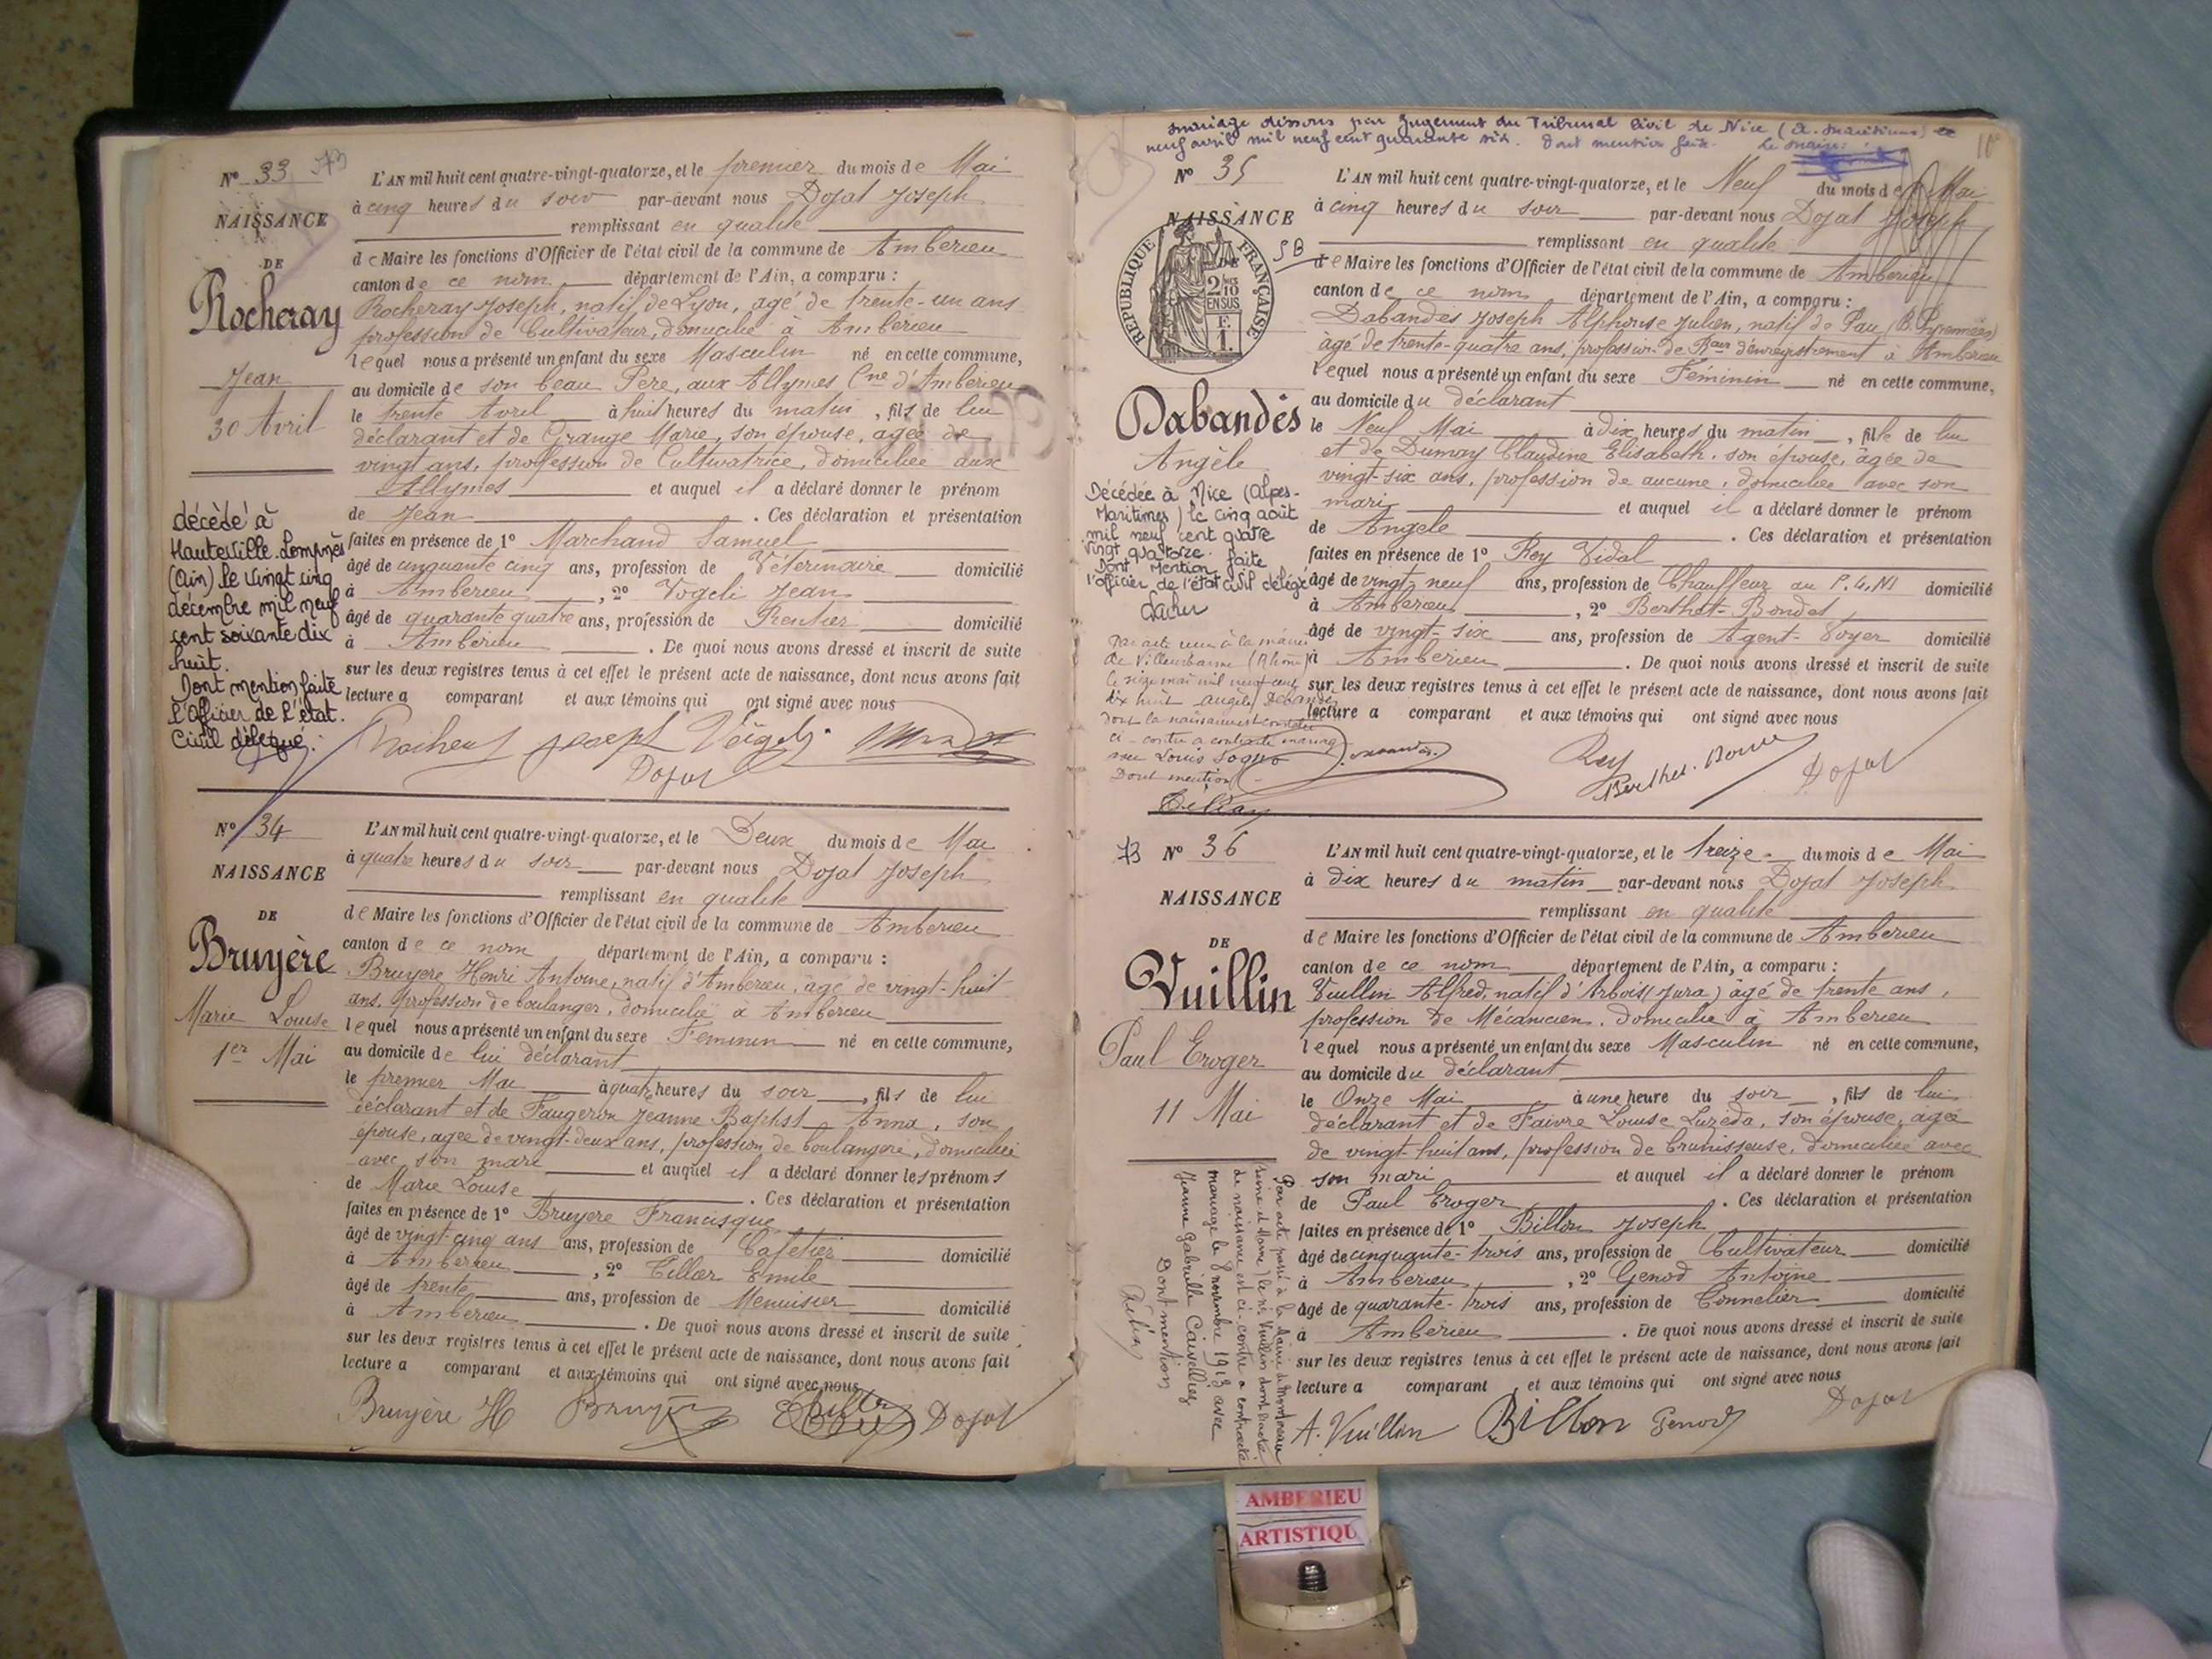 N° 33 73
NAISSANCE
DE
Rocheray
Jean
30 Avril
décédé à
Hauteville-Lompnès
(Ain) le vingt cinq
décembre mil neuf
cent soixante dix
huit.
Dont mention faite
L'Officier de L'état.
Civil délégué.
L'AN mil huit cent quatre-vingt-quatorze, et le premier du mois de Mai
à cinq heures du soir par-devant nous Dojat Joseph
remplissant en qualité
de Maire les fonctions d'Officier de l'état civil de la commune de Amberieu
canton de ce nom département de l'Ain, a comparu :
Rocheray Joseph, natif de Lyon, agé de trente-un ans
profession de Cultivateur, domicilié à Amberieu
lequel nous a présenté un enfant du sexe Masculin né en cette commune,
au domicile de son beau Père, aux Allymes Cne d'Amberieu
le trente Avril à huit heures du matin, fils de lui
déclarant et de Grange Marie, son épouse, agée de
vingt ans, profession de Cultivatrice, domiciliée aux
Allymes et auquel il a déclaré donner le prénom
de Jean . Ces déclaration et présentation
faites en présence de 1° Marchand Samuel
âgé de cinquante cinq ans, profession de Véterinaire domicilié
à Amberieu , 2° Vogeli Jean
âgé de quarante quatre ans, profession de Rentier domicilié
à Amberieu . De quoi nous avons dressé et inscrit de suite
sur les deux registres tenus à cet effet le présent acte de naissance, dont nous avons fait
lecture a comparant et aux témoins qui ont signé avec nous
Rocheray Joseph Vögeli
Dojat
N° 34
NAISSANCE
DE
Bruyère
Marie Louise
1er Mai
L'AN mil huit cent quatre-vingt-quatorze, et le Deux du mois de Mai
à quatre heures du soir par-devant nous Dojat Joseph
remplissant en qualité
de Maire les fonctions d'Officier de l'état civil de la commune de Amberieu
canton de ce nom département de l'Ain, a comparu :
Bruyere Henri Antoine, natif d'Amberieu, âgé de vingt-huit
ans, profession de boulanger, domicilié à Amberieu
lequel nous a présenté un enfant du sexe Féminin né en cette commune,
au domicile de lui déclarant
le premier Mai à quatre heures du soir, fils de lui
déclarant et de Faugeron Jeanne Baptist Anna, son
épouse, agée de vingt-deux ans, profession de boulangere, domiciliée
avec son mari et auquel il a déclaré donner les prénoms
de Marie Louise . Ces déclaration et présentation
faites en présence de 1° Bruyere Francisque
âgé de vingt-cinq ans ans, profession de Cafetier domicilié
à Amberieu , 2° Tiller Emile
âgé de trente ans, profession de Menuisier domicilié
à Amberieu . De quoi nous avons dressé et inscrit de suite
sur les deux registres tenus à cet effet le présent acte de naissance, dont nous avons fait
lecture a comparant et aux témoins qui ont signé avec nous
Bruyère H Bruyère Dojat
mariage dissous par jugement du Tribunal Civil de Nice (A. Maritimes) le
neuf avril mil neuf cent quarante six. Dont mention faite. Le Maire:
10
N° 35
NAISSANCE
DE
RÉPUBLIQUE FRANÇAISE
2/10
EN SUS
F.
1.
5B
Dabandès
Angèle
Décédée à Nice (Alpes-
Maritimes) le cinq août
mil neuf cent quatre
vingt quatorze.
Dont Mention faite
l'officier de l'état civil délégué
Par acte reçu à la mairie
de Villeurbanne (Rhône)
le seize mai mil neuf cent
dix huit Angèle Dabandès
dont la naissance est constatée
ci-contre a contracté mariage
avec Louis Sogno
Dont mention
L'AN mil huit cent quatre-vingt-quatorze, et le Neuf du mois de Mai
à cinq heures du soir par-devant nous Dojat Joseph
remplissant en qualité
de Maire les fonctions d'Officier de l'état civil de la commune de Amberieu
canton de ce nom département de l'Ain, a comparu :
Dabandès Joseph Alphonse Julien, natif de Pau (B. Pyrennées)
âgé de trente-quatre ans, profession de Rceur d'enregistrement à Amberieu
lequel nous a présenté un enfant du sexe Féminin né en cette commune,
au domicile du déclarant
le Neuf Mai à dix heures du matin, fille de lui
et de Dumay Claudine Elisabeth, son épouse, agée de
vingt-six ans, profession de aucune, domiciliée avec son
mari et auquel il a déclaré donner le prénom
de Angele . Ces déclaration et présentation
faites en présence de 1° Rey Vidal
âgé de vingt-neuf ans, profession de Chauffeur au P.L.M domicilié
à Amberieu , 2° Berthet-Bondet
âgé de vingt-six ans, profession de Agent-Voyer domicilié
à Amberieu . De quoi nous avons dressé et inscrit de suite
sur les deux registres tenus à cet effet le présent acte de naissance, dont nous avons fait
lecture a comparant et aux témoins qui ont signé avec nous
Rey
Berthet-Bondet Dojat
73 N° 36
NAISSANCE
DE
Vuillin
Paul Eroger
11 Mai
Par acte passé à la Mairie de Montereau
Seine et Marne) le né Vuillin dont l'acte
de naissance est ci-contre a contracté
mariage le 8 novembre 1913 avec
Jeanne Gabrielle
Dont mention
L'AN mil huit cent quatre-vingt-quatorze, et le treize du mois de Mai
à dix heures du matin par-devant nous Dojat Joseph
remplissant en qualité
de Maire les fonctions d'Officier de l'état civil de la commune de Amberieu
canton de ce nom département de l'Ain, a comparu :
Vuillin Alfred, natif d'Arbois (Jura) âgé de trente ans,
profession de Mécanicien, domicilié à Amberieu
lequel nous a présenté un enfant du sexe Masculin né en cette commune,
au domicile du déclarant
le Onze Mai à une heure du soir, fils de lui
déclarant et de Faivre Louise Luzéda, son épouse, agée
de vingt-huit ans, profession de brunisseuse, domiciliée avec
son mari et auquel il a déclaré donner le prénom
de Paul Eroger . Ces déclaration et présentation
faites en présence de 1° Billon Joseph
âgé de cinquante-trois ans, profession de Cultivateur domicilié
à Amberieu , 2° Genod Antoine
âgé de quarante-trois ans, profession de Tonnelier domicilié
à Amberieu . De quoi nous avons dressé et inscrit de suite
sur les deux registres tenus à cet effet le présent acte de naissance, dont nous avons fait
lecture a comparant et aux témoins qui ont signé avec nous
A. Vuillin Billon Genod Dojat
AMBERIEU
ARTISTIQU